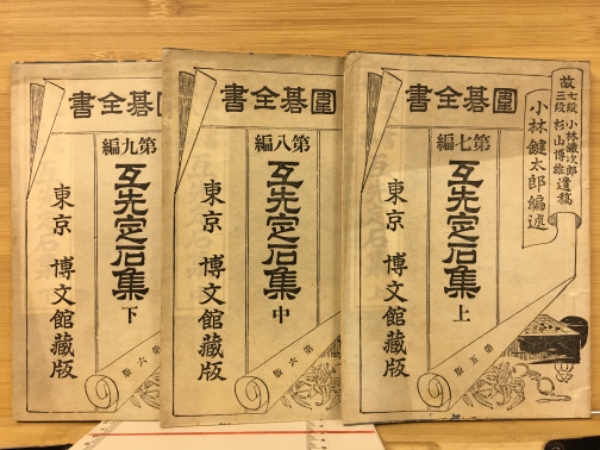 圍碁全書
故七段小林鐵次郎
三段杉山博雄遺稿
小林鍵太郎編述
第七編
互先定石集上
東京 博文館藏版
第五版
圍碁全書
第八編
互先定石集中
東京 博文館藏版
第六版
碁全書
第九編
互先定石集下
東京 博文館藏版
第六版